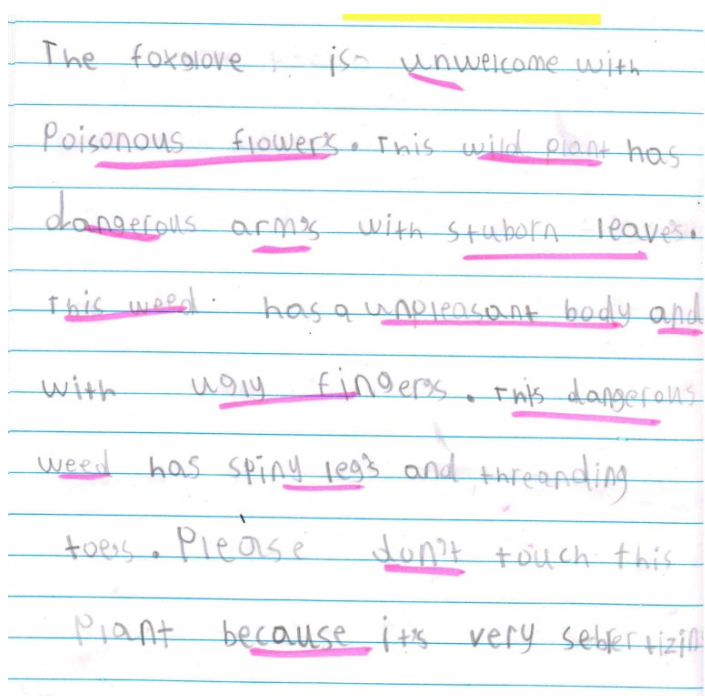 The foxglove is unwelcome with
Poisonous flower's. This wild plant has
dangerous arm's with stuborn leave's.
This weed has a unpleasant body and
with ugly finger's. This dangerous
weed has spiny leg's and threanding
toe's. Please don't touch this
Plant because it's very